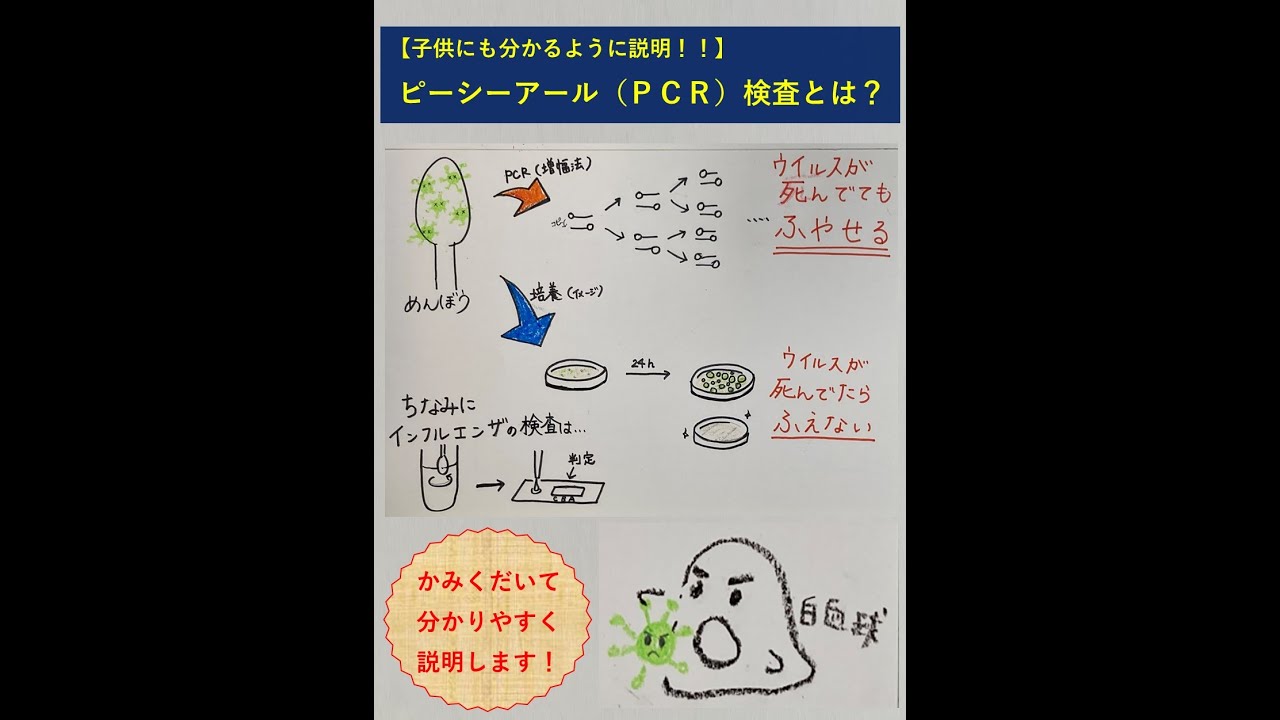 【子供にも分かるように説明！！】
ピーシーアール（ＰＣＲ）検査とは？
PCR(増幅法)
コピー
ウイルスが
死んでても
.... ふやせる
めんぼう
培養(イメージ)
24h
ウイルスが
死んでたら
ふえない
ちなみに
インフルエンザの検査は...
判定
C B A
かみくだいて
分かりやすく
説明します！
白血球